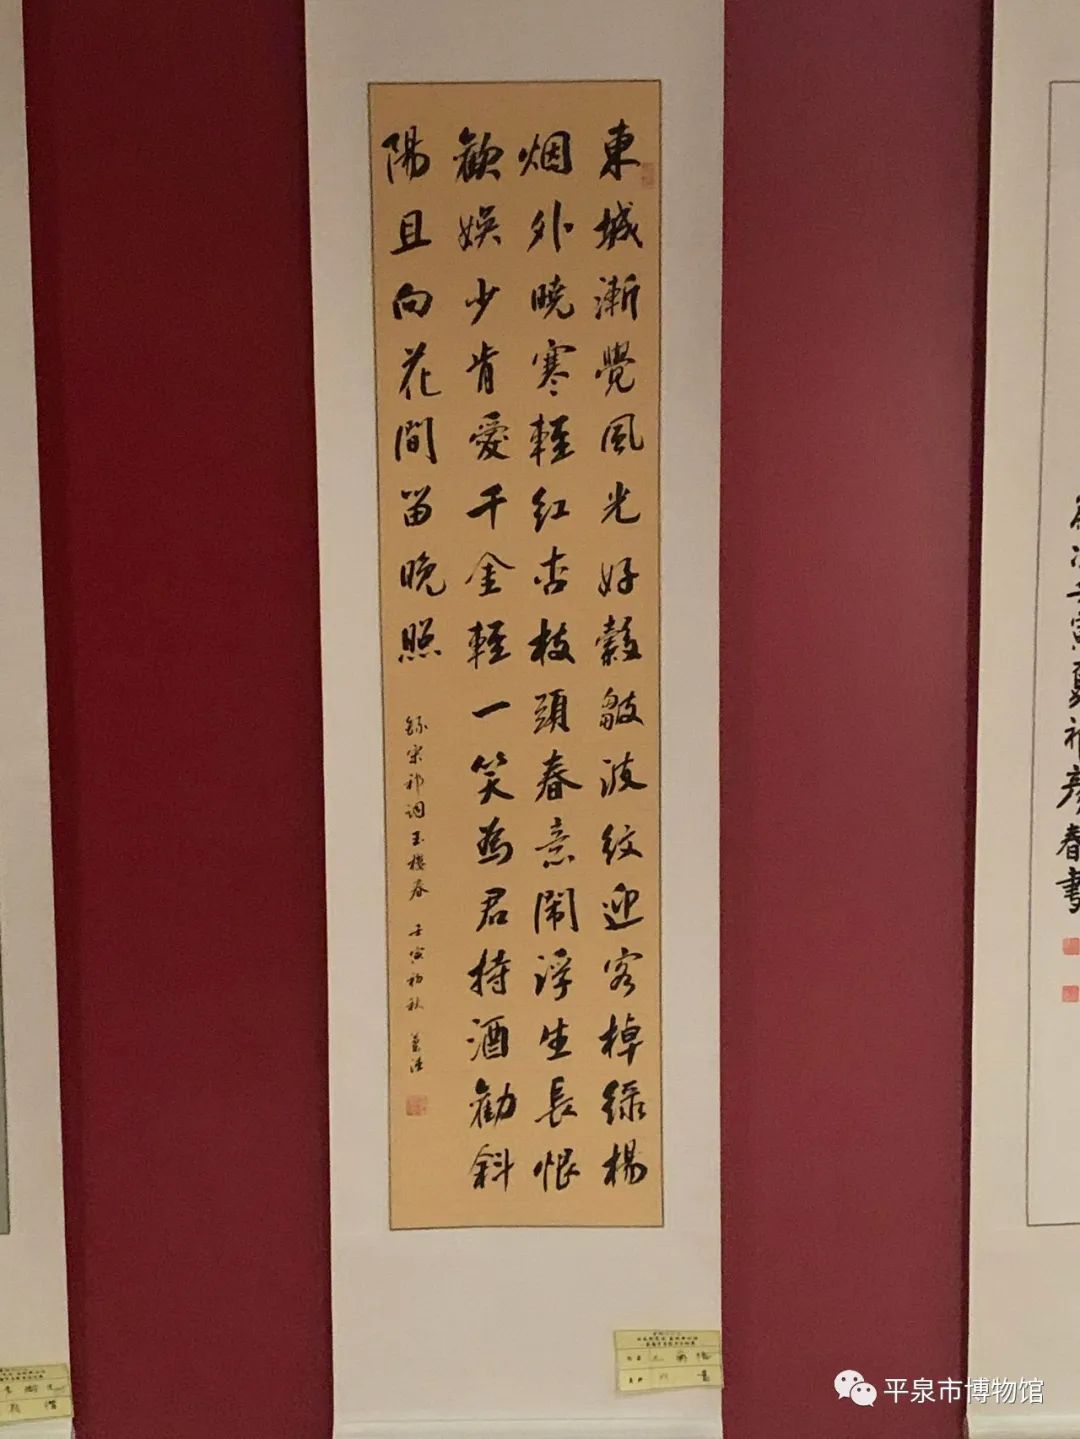 東城漸覺風光好縠皺波紋迎客棹綠楊
烟外曉寒輕紅杏枝頭春意鬧浮生長恨
歡娛少肯愛千金輕一笑為君持酒勸斜
陽且向花間留晚照
錄宋祁詞玉樓春 壬寅初秋
壬寅夏祁彥春書
平泉市博物馆